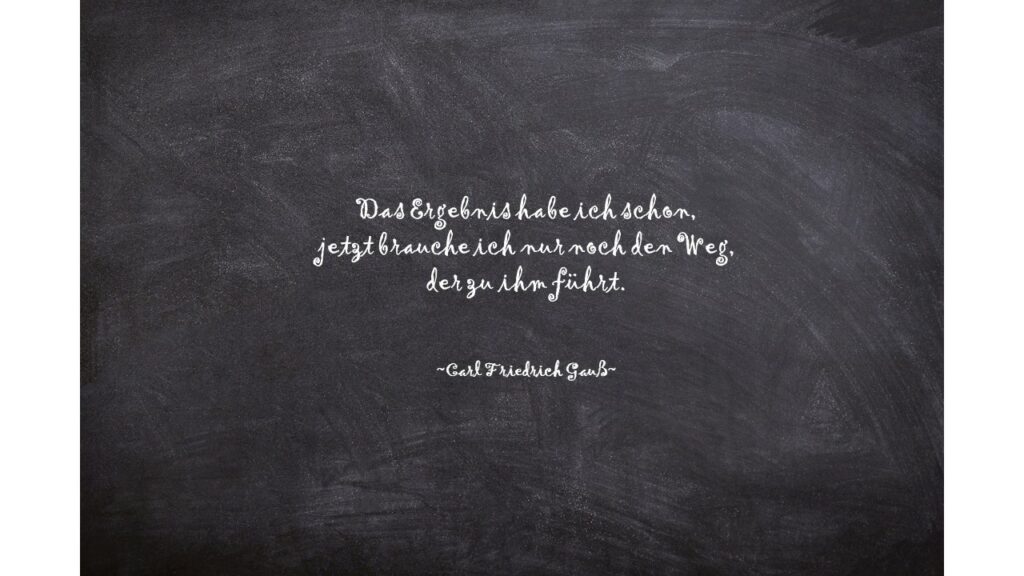 Das Ergebnis habe ich schon,
jetzt brauche ich nur noch den Weg,
der zu ihm führt.
~Carl Friedrich Gauß~